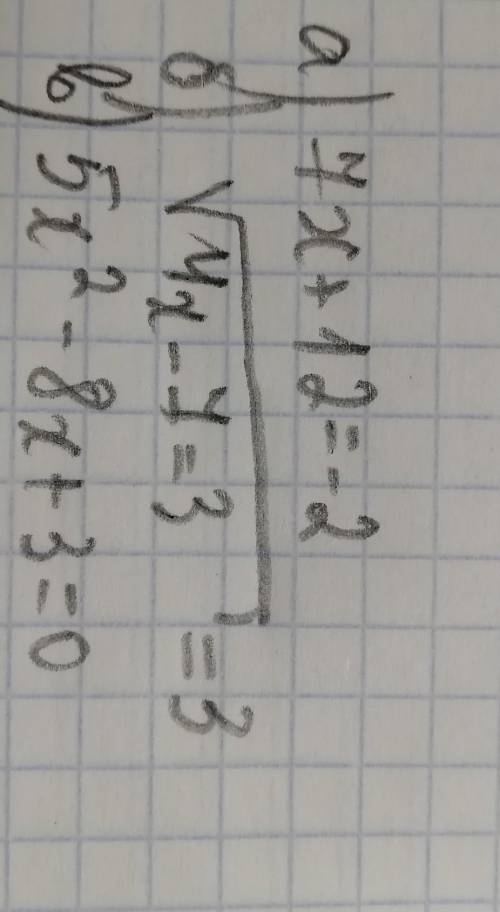 а) 7x+12=-2
б) √4x-7=3 =3
в) 5x²-8x+3=0